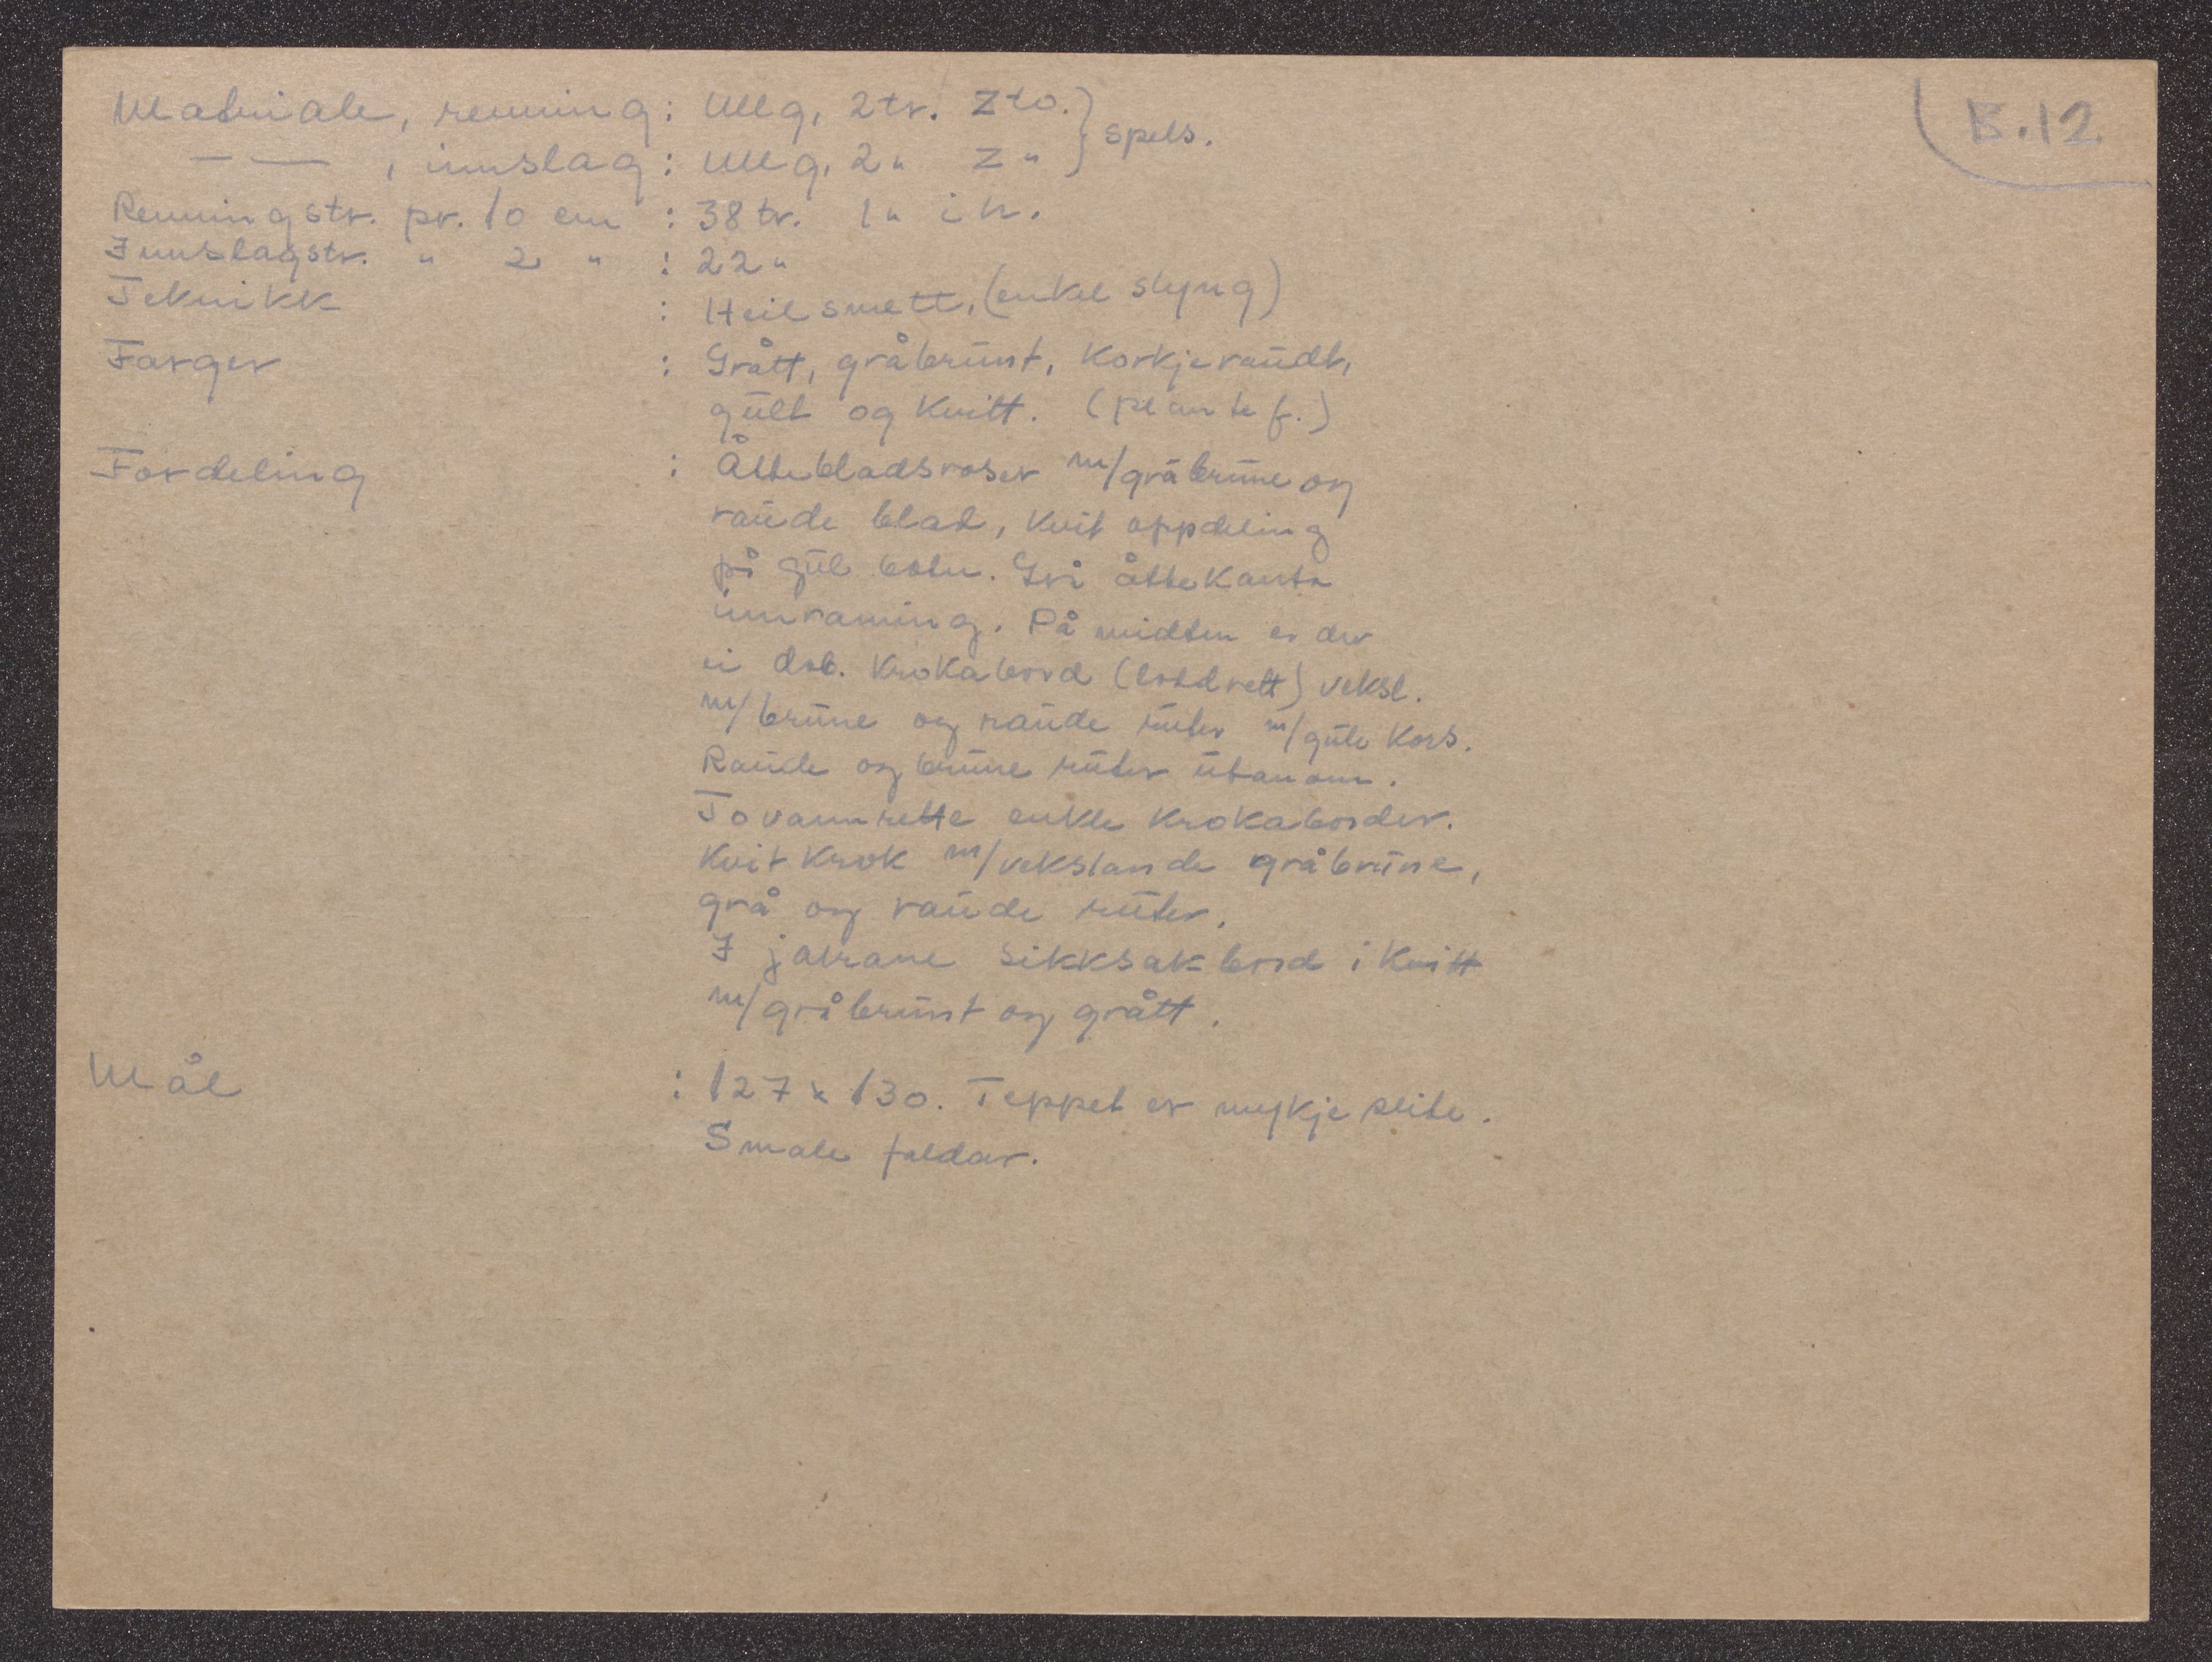 B.12
Materiale, renning : Ullg, 2tr. Zto. } spels.
— — , innslag : Ullg, 2 " Z " }
Renningstr. pr. 10 cm : 38 tr. 1 " i h.
Innslagstr. " 2 " : 22 "
Teknikk : Heilsmett, (enkel slyng)
Farger : Grått, gråbrunt, Korkjeraudt,
gult og Kvitt. (plantef.)
Fordeling : Åttebladsroser m/gråbrune og
raude blad, Kvit oppdeling
på gul botn. Grå åttekanta
innraming. På midten er der
ei dob. Krokabord (loddrett) veksl.
m/brune og raude ruter m/gule Kors.
Raude og brune ruter utanom.
To vannrette enkle Krokabordar.
Kvit Krok m/vekslande gråbrune,
grå og raude ruter.
I jarane sikksakbord i Kvitt
m/gråbrunt og grått.
Mål : 127 x 130. Teppet er mykje slite.
Smale faldar.